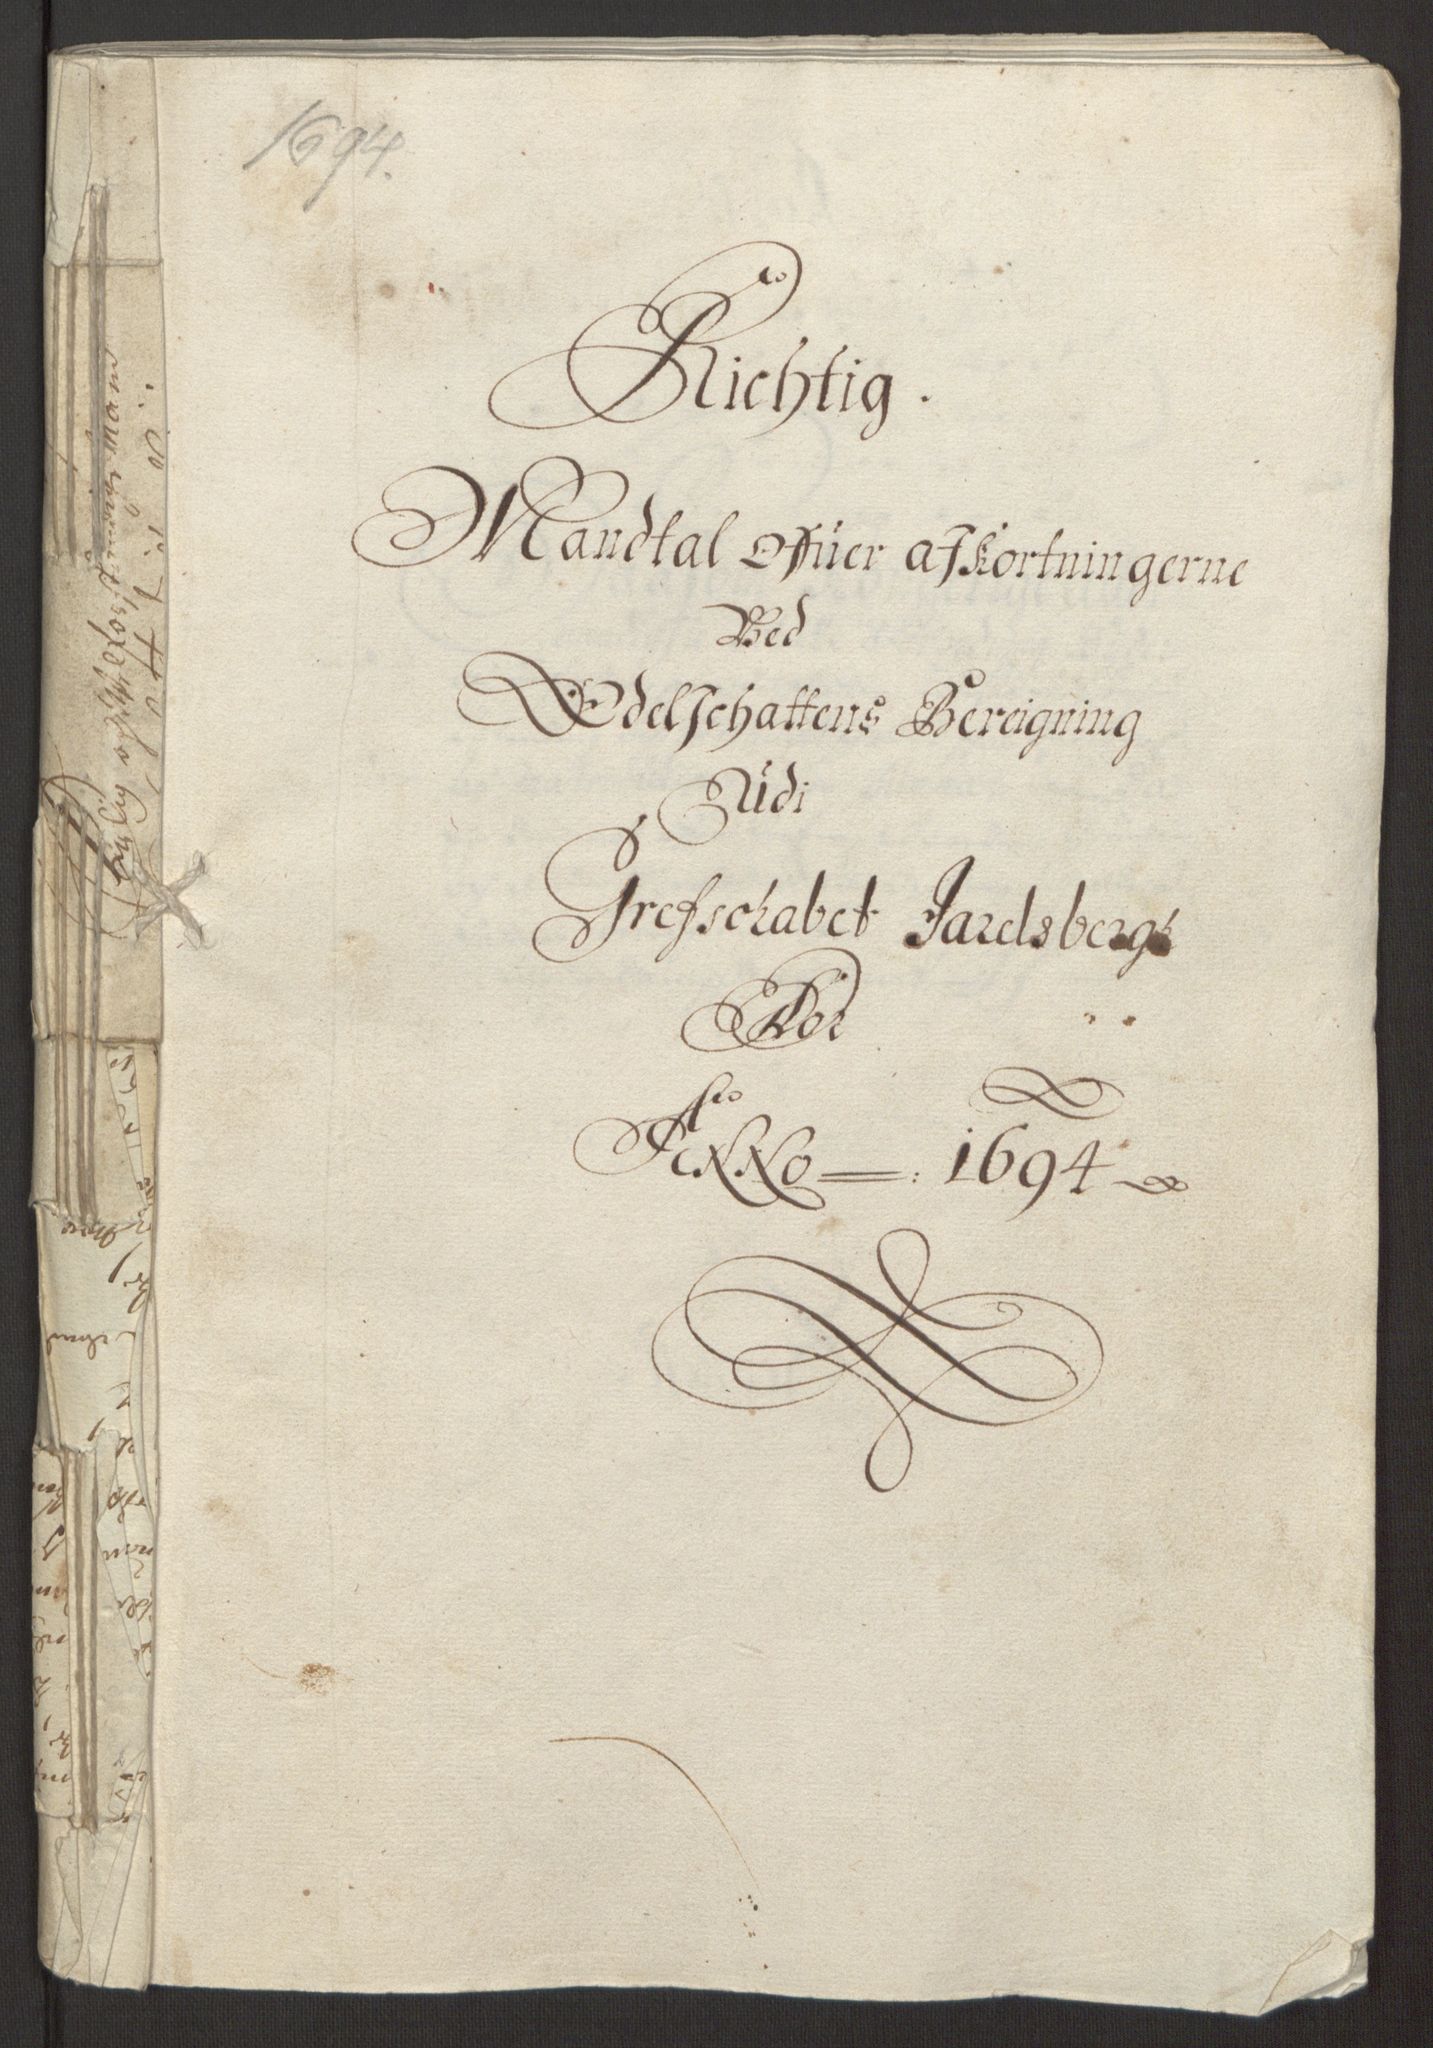 1694.
Richtig.
Mandtal offúer afkortningerne
Wed
Odelschattens Bereigning
Údi
Grefschabet Jarelsbergh
For
Anno = : 1694